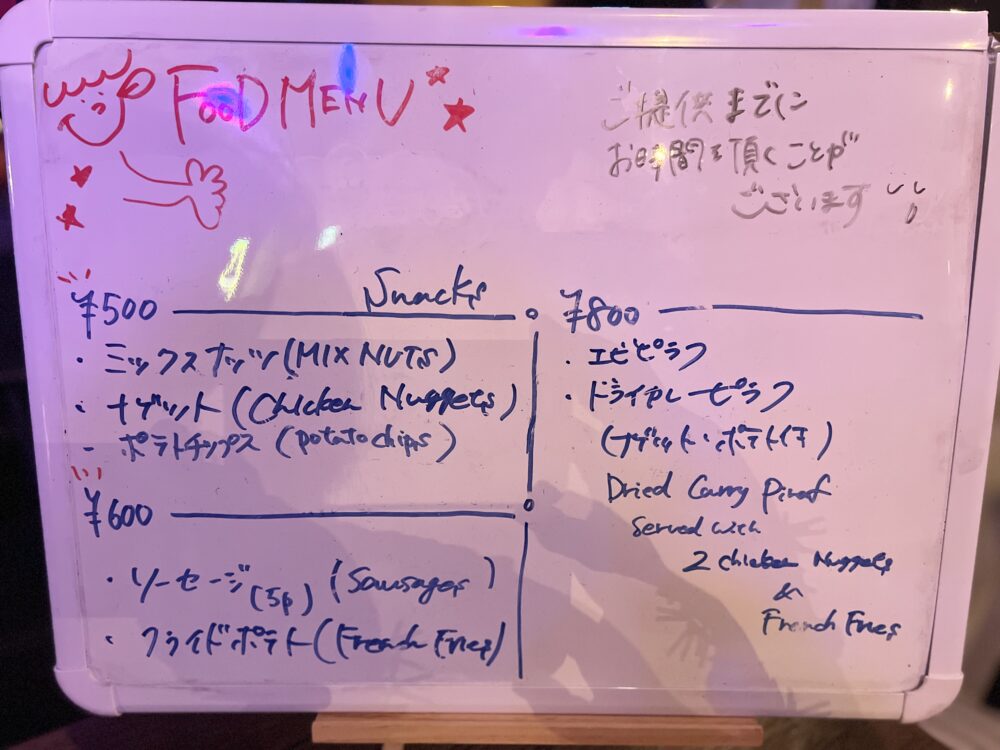 FOOD MENU
ご提供までに
お時間を頂くことが
ございます
Snacks
¥500
・ミックスナッツ(MIX NUTS)
・ナゲット(Chicken Nuggets)
・ポテトチップス(potato chips)
¥600
・ソーセージ(5p)(Sausages)
・フライドポテト(French Fries)
¥800
・エビピラフ
・ドライカレーピラフ
(ナゲット・ポテト付)
Dried Curry Piraf
Served with
2 chicken Nuggets
&
French Fries